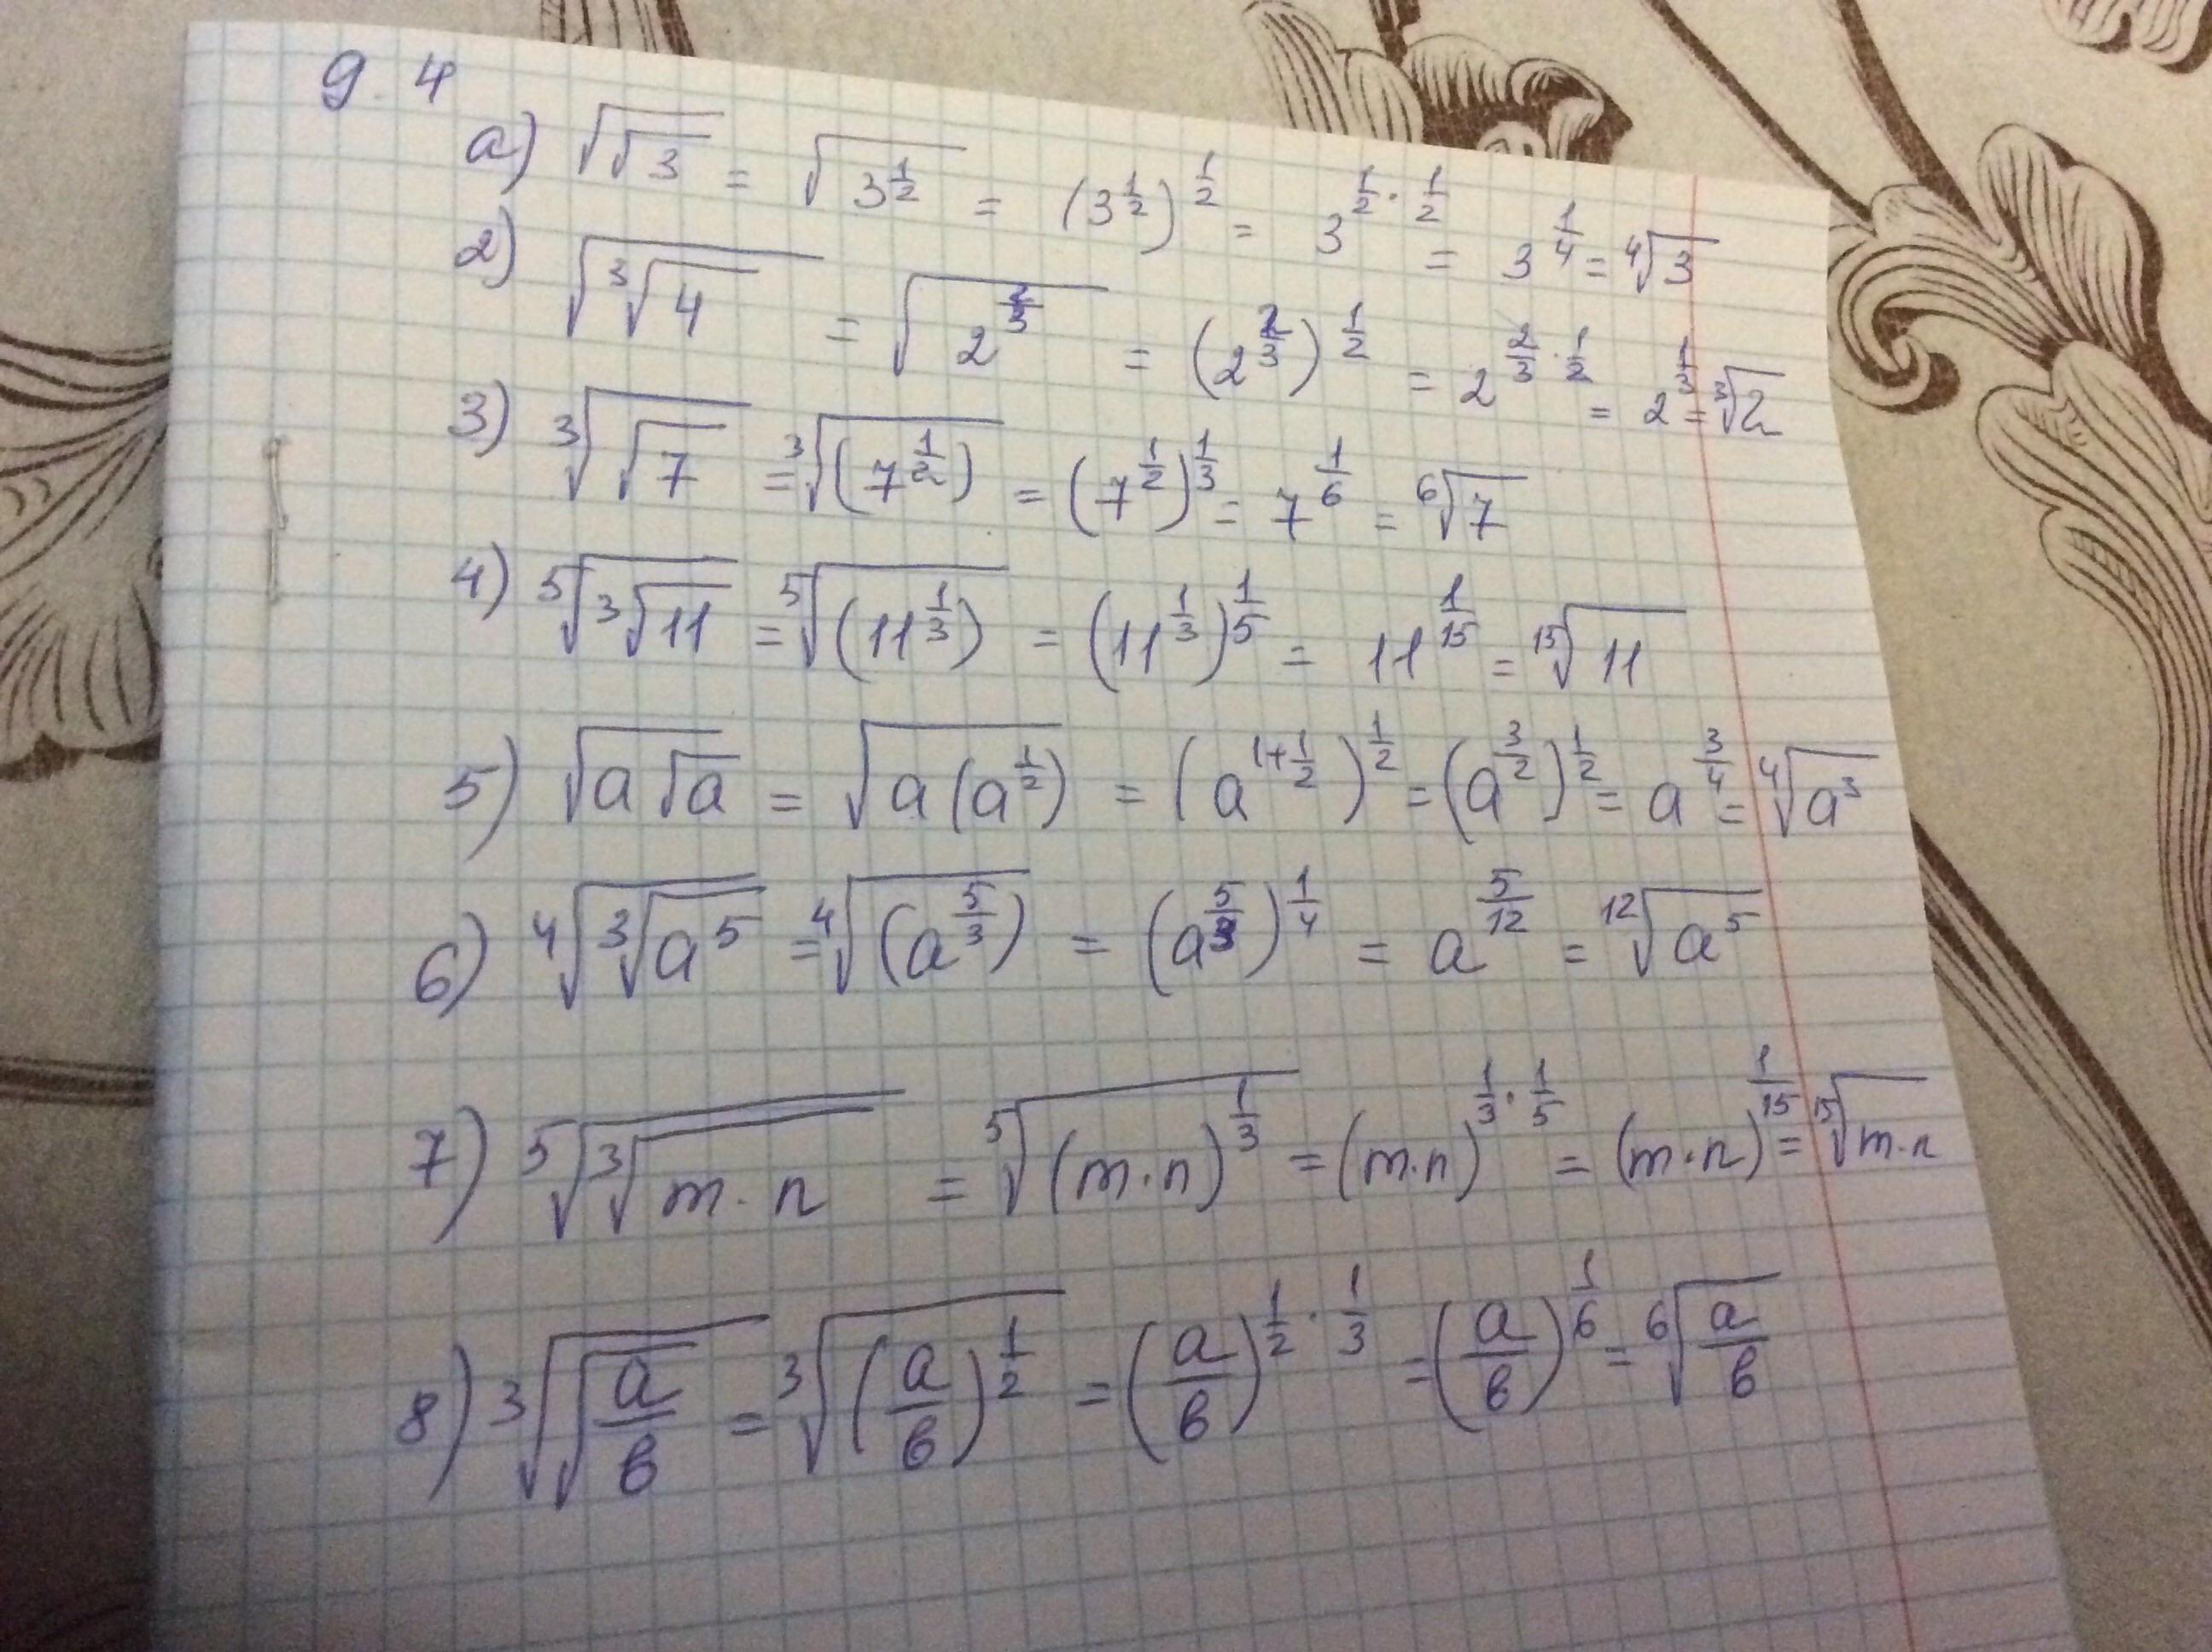 9.4
a) √√3 = √3^(1/2) = (3^(1/2))^(1/2) = 3^(1/2 · 1/2) = 3^(1/4) = ⁴√3
2) √³√4 = √2^(2/3) = (2^(2/3))^(1/2) = 2^(2/3 · 1/2) = 2^(1/3) = ³√2
3) ³√√7 = ³√(7^(1/2)) = (7^(1/2))^(1/3) = 7^(1/6) = ⁶√7
4) ⁵√³√11 = ⁵√(11^(1/3)) = (11^(1/3))^(1/5) = 11^(1/15) = ¹⁵√11
5) √a√a = √a(a^(1/2)) = (a^(1+1/2))^(1/2) = (a^(3/2))^(1/2) = a^(3/4) = ⁴√a³
6) ⁴√³√a⁵ = ⁴√(a^(5/3)) = (a^(5/3))^(1/4) = a^(5/12) = ¹²√a⁵
7) ⁵√³√m·n = ⁵√(m·n)^(1/3) = (m·n)^(1/3 · 1/5) = (m·n)^(1/15) = ¹⁵√m·n
8) ³√√(a/в) = ³√(a/в)^(1/2) = (a/в)^(1/2 · 1/3) = (a/в)^(1/6) = ⁶√(a/в)